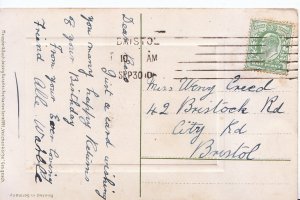 Dear
Just a card wishing
You many happy Returns
of your Birthday
From your Ever loving
Friend
BRISTOL
10 AM
SEP 30 0
Miss Weny Creed
42 Bristock Rd
City Rd
Bristol
Printed in Germany